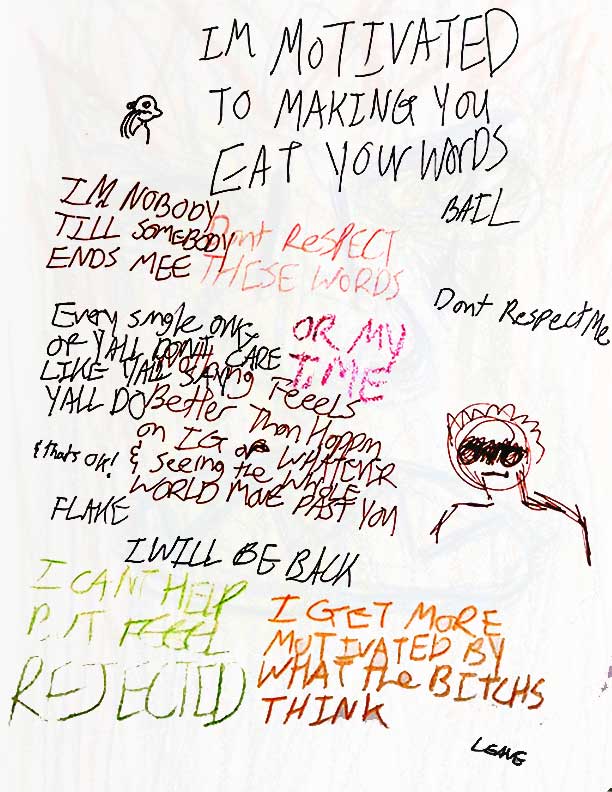 IM MOTIVATED
TO MAKING YOU
EAT YOUR WORDS
BAIL
IM NOBODY
TILL SOMEBODY
ENDS MEE
Dont ReSPECT
THESE WORDS
OR MY
TIME
Dont Respect Me
Every single ONE
OF YALL DONT CARE
LIKE YALL SAY
YALL DO
& thats OK!
FEEELS
Better Than Hoppin
on IG or WHATEVER
& seeing the WHOLE
WORLD MOVE PAST YOU
FLAKE
I WILL BE BACK
I CANT HELP
BUT FEEL
REJECTED
I GET MORE
MOTIVATED BY
WHAT the BITCHS
THINK
LEAVE